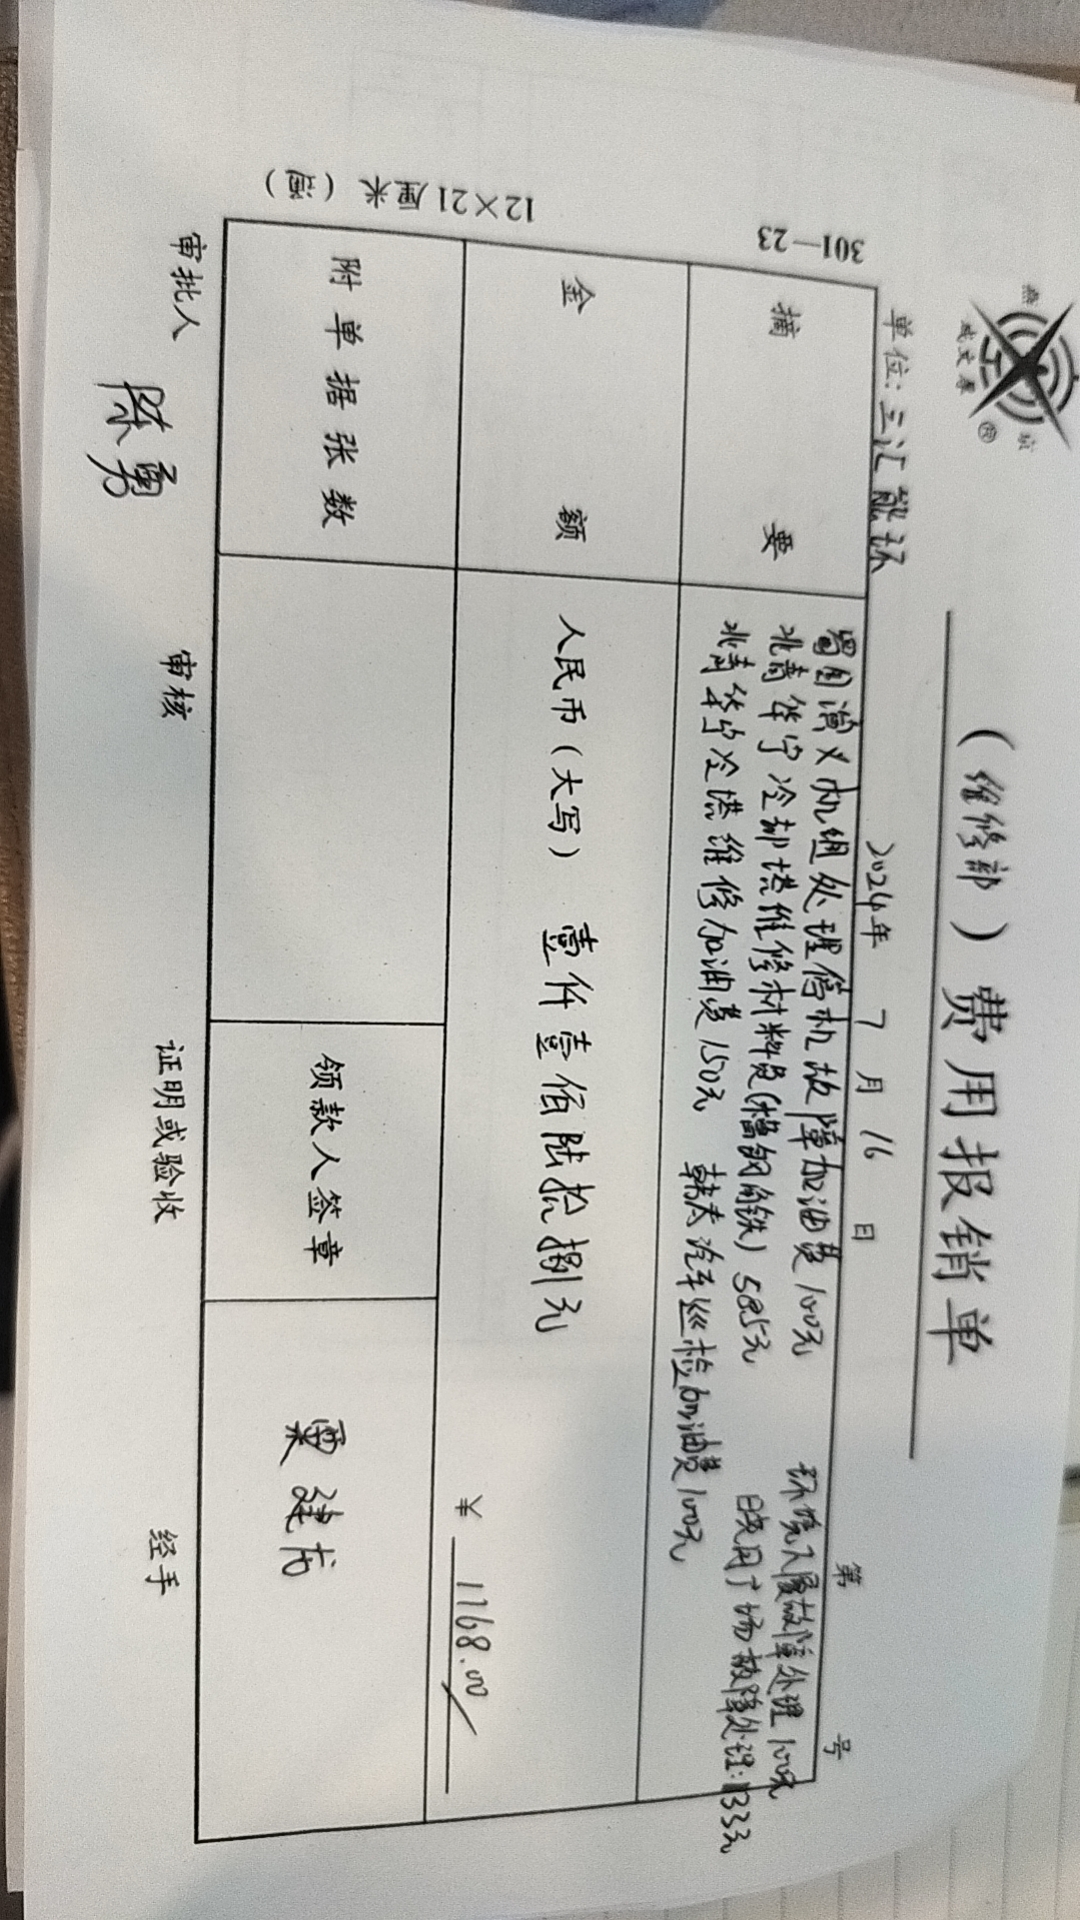 （维修部）费用报销单
单位：三汇能环 2024年 7月 16日 第 号
摘要
蜀国演义机组处理停机故障加油费100元 环境大厦故障处理100元
北青华宁冷却塔维修材料费(槽钢角铁) 585元 故障处理:133元
北青华宁冷塔维修加油费150元 汽车巡检加油费100元
金额
人民币（大写）壹仟壹佰陆拾捌元 ￥1168.00
附单据张数
领款人签章
栗建方
审批人 陈勇 审核 证明或验收 经手
301—23
12×21厘米（ ）